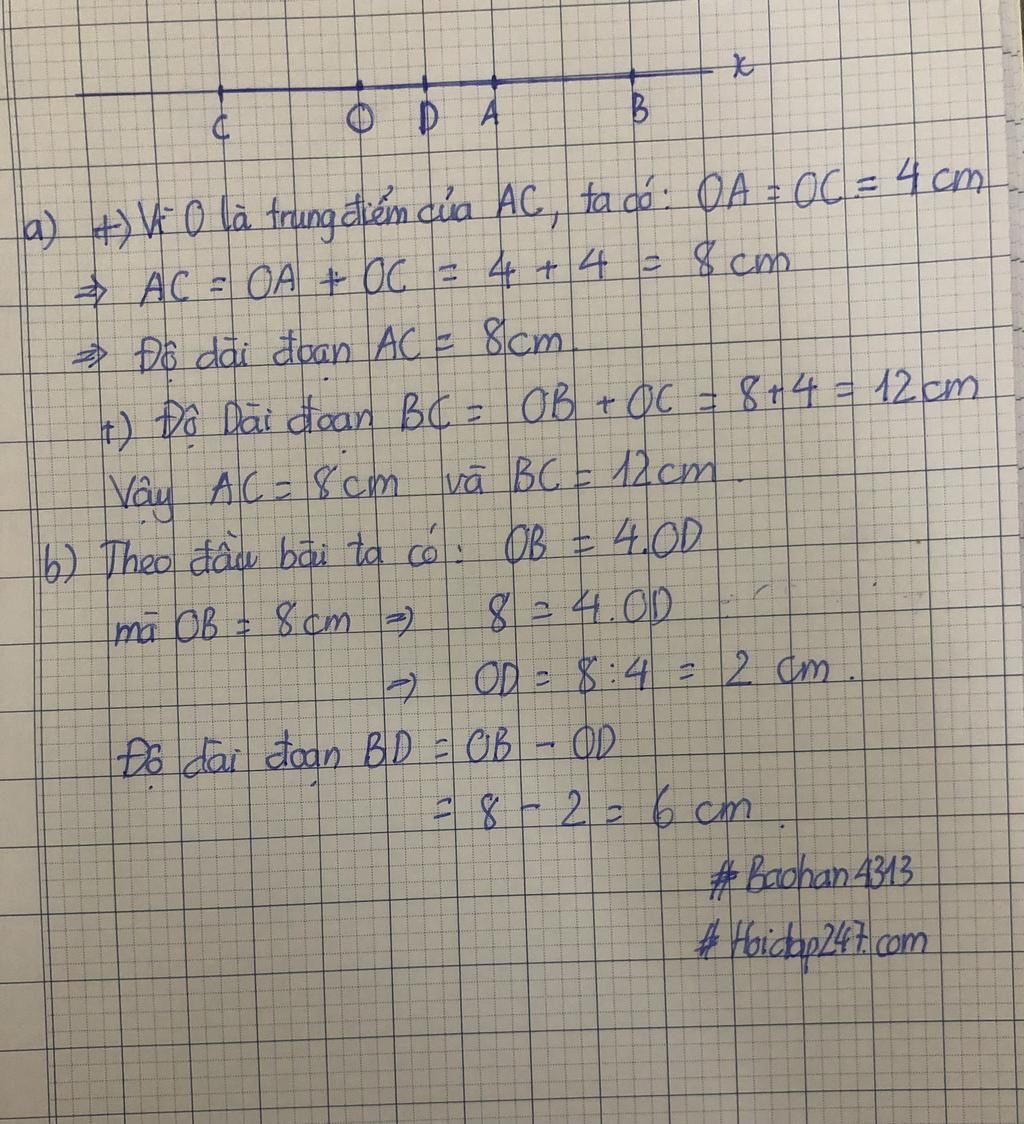 x
C O D A B
a) +) Vì O là trung điểm của AC, ta có: OA = OC = 4 cm
⇒ AC = OA + OC = 4 + 4 = 8 cm
⇒ Độ dài đoạn AC = 8cm
+) Độ Dài đoạn BC = OB + OC = 8+4 = 12 cm
Vậy AC = 8 cm và BC = 12 cm.
b) Theo đầu bài ta có: OB = 4.OD
mà OB = 8 cm ⇒ 8 = 4.OD
⇒ OD = 8:4 = 2 cm.
Độ dài đoạn BD = OB - OD
= 8 - 2 = 6 cm.
# Baohan4313
# Hoidap247.com